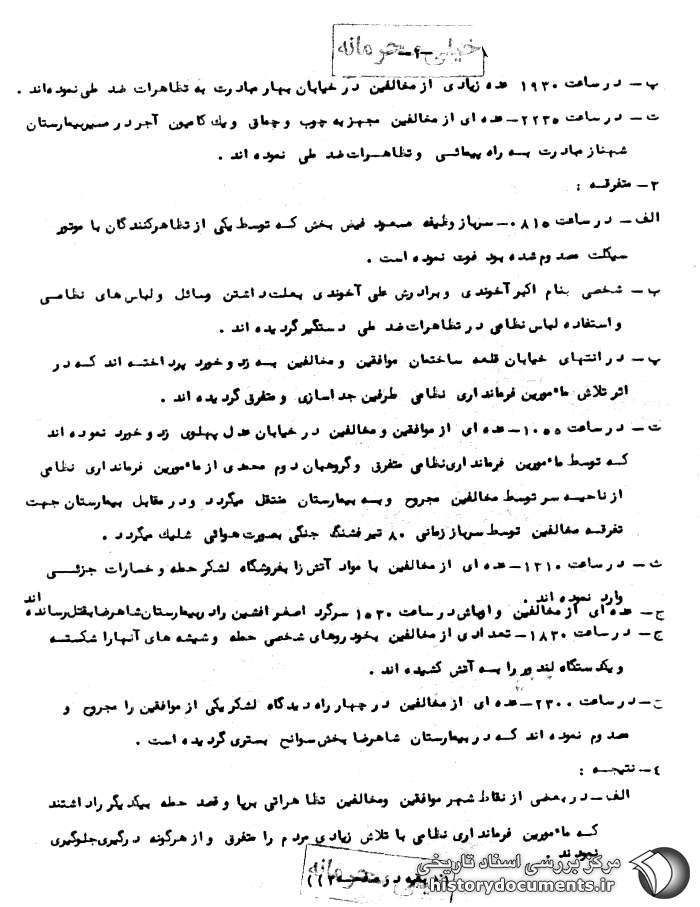 خیلی محرمانه
-۲-
پ- در ساعت ۱۹۳۰ عده زیادی از مخالفین در خیابان بهار مبادرت به تظاهرات ضد ملی نموده‌اند .
ت- در ساعت ۲۲۳۵- عده ای از مخالفین مجهز به چوب و چماق و یك کامیون آجر در مسیر بیمارستان
شهناز مبادرت به راه پیمائی و تظاهرات ضد ملی نموده اند .
۳- متفرقه :
الف- در ساعت ۰۸۱۵- سرباز وظیفه مسعود فیض بخش که توسط یکی از تظاهرکنندگان با موتور
سیکلت مصدوم شده بود فوت نموده است .
ب- شخصی بنام اکبر آخوندی و برادرش علی آخوندی بعلت داشتن وسائل و لباس های نظامی
و استفاده لباس نظامی در تظاهرات ضد ملی دستگیر گردیده اند .
پ- در انتهای خیابان قلعه ساختمان موافقین و مخالفین به زد و خورد پرداخته اند که در
اثر تلاش مأمورین فرمانداری نظامی طرفین جداسازی و متفرق گردیده اند .
ت- در ساعت ۱۰۵۵- عده ای از موافقین و مخالفین در خیابان عدل پهلوی زد و خورد نموده اند
که توسط مأمورین فرمانداری نظامی متفرق و گروهبان دوم محمدی از مأمورین فرمانداری نظامی
از ناحیه سر توسط مخالفین مجروح و به بیمارستان منتقل میگردد و در مقابل بیمارستان جهت
تفرقه مخالفین توسط سرباز زمانی ۸۰ تیر فشنگ جنگی بصورت هوائی شلیك میگردد .
ث- در ساعت ۱۲۱۰- عده ای از مخالفین با مواد آتش زا بفروشگاه لشکر حمله و خسارات جزئی
وارد نموده اند .
ج- عده ای از مخالفین و اوباش در ساعت ۱۵۳۰ سرگرد اصغر افشین را در بیمارستان شاهرضا بقتل رسانده اند
چ- در ساعت ۱۸۳۰- تعدادی از مخالفین بخودروهای شخصی حمله و شیشه های آنها را شکسته
و یکدستگاه لندرور را به آتش کشیده اند .
ح- در ساعت ۲۳۰۰- عده ای از مخالفین در چهارراه دیدگاه لشکر یکی از موافقین را مجروح و
مصدوم نموده اند که در بیمارستان شاهرضا بخش سوانح بستری گردیده است .
٤- نتیجه :
الف- در بعضی از نقاط شهر موافقین و مخالفین تظاهراتی برپا و قصد حمله بیکدیگر را داشتند
که مأمورین فرمانداری نظامی با تلاش زیادی مردم را متفرق و از هرگونه درگیری جلوگیری
نمودند
خیلی محرمانه
(( بقیه در صفحه ۳ ))
مرکز بررسی اسناد تاریخی
historydocuments.ir